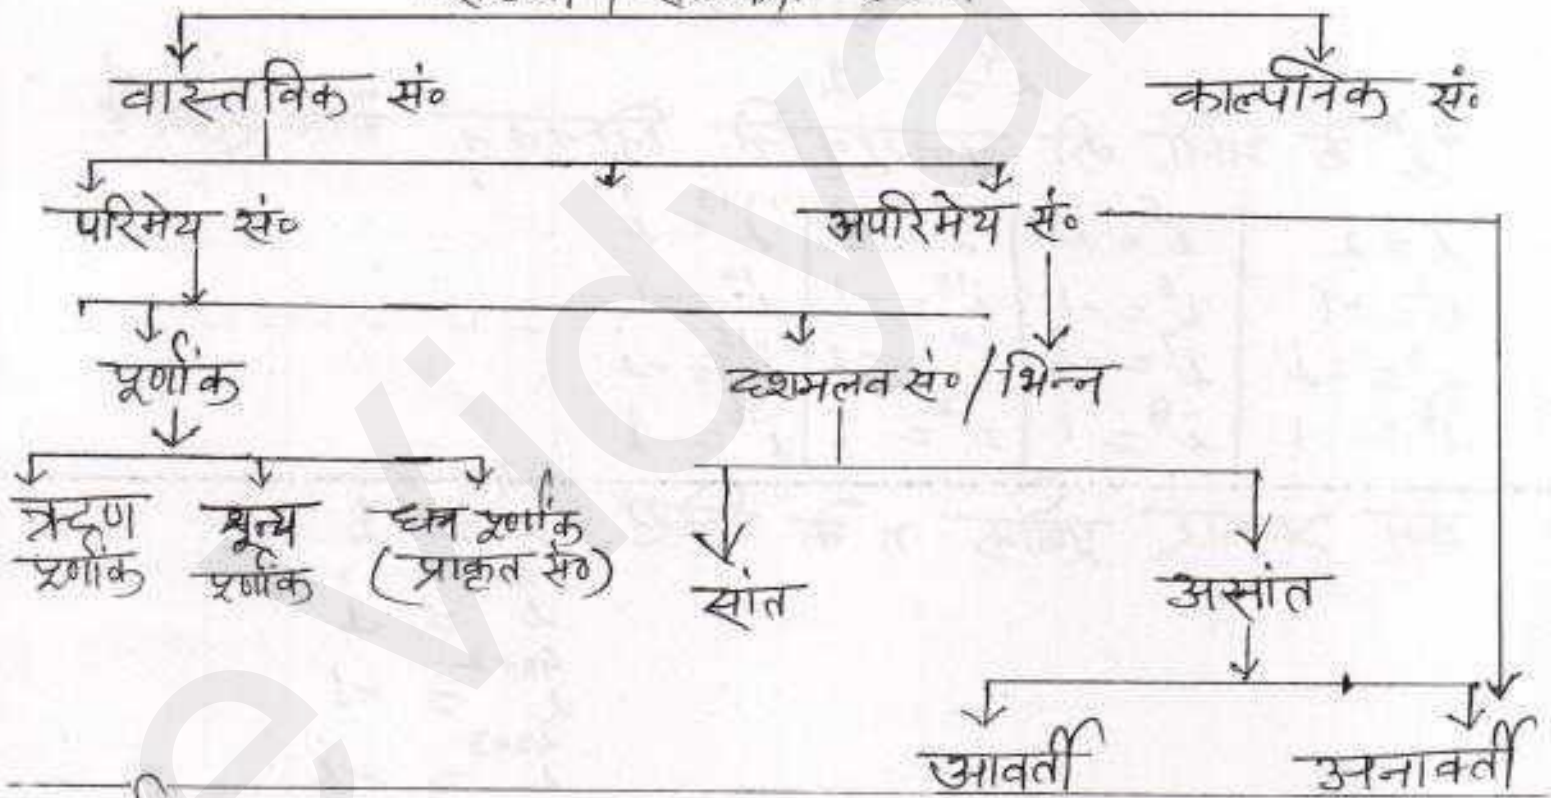 वास्तविक सं० काल्पनिक सं०
परिमेय सं० अपरिमेय सं०
पूर्णांक दशमलव सं०/भिन्न
ऋण शून्य धन पूर्णांक
पूर्णांक पूर्णांक (प्राकृत सं०) सांत असांत
आवर्ती अनावर्ती